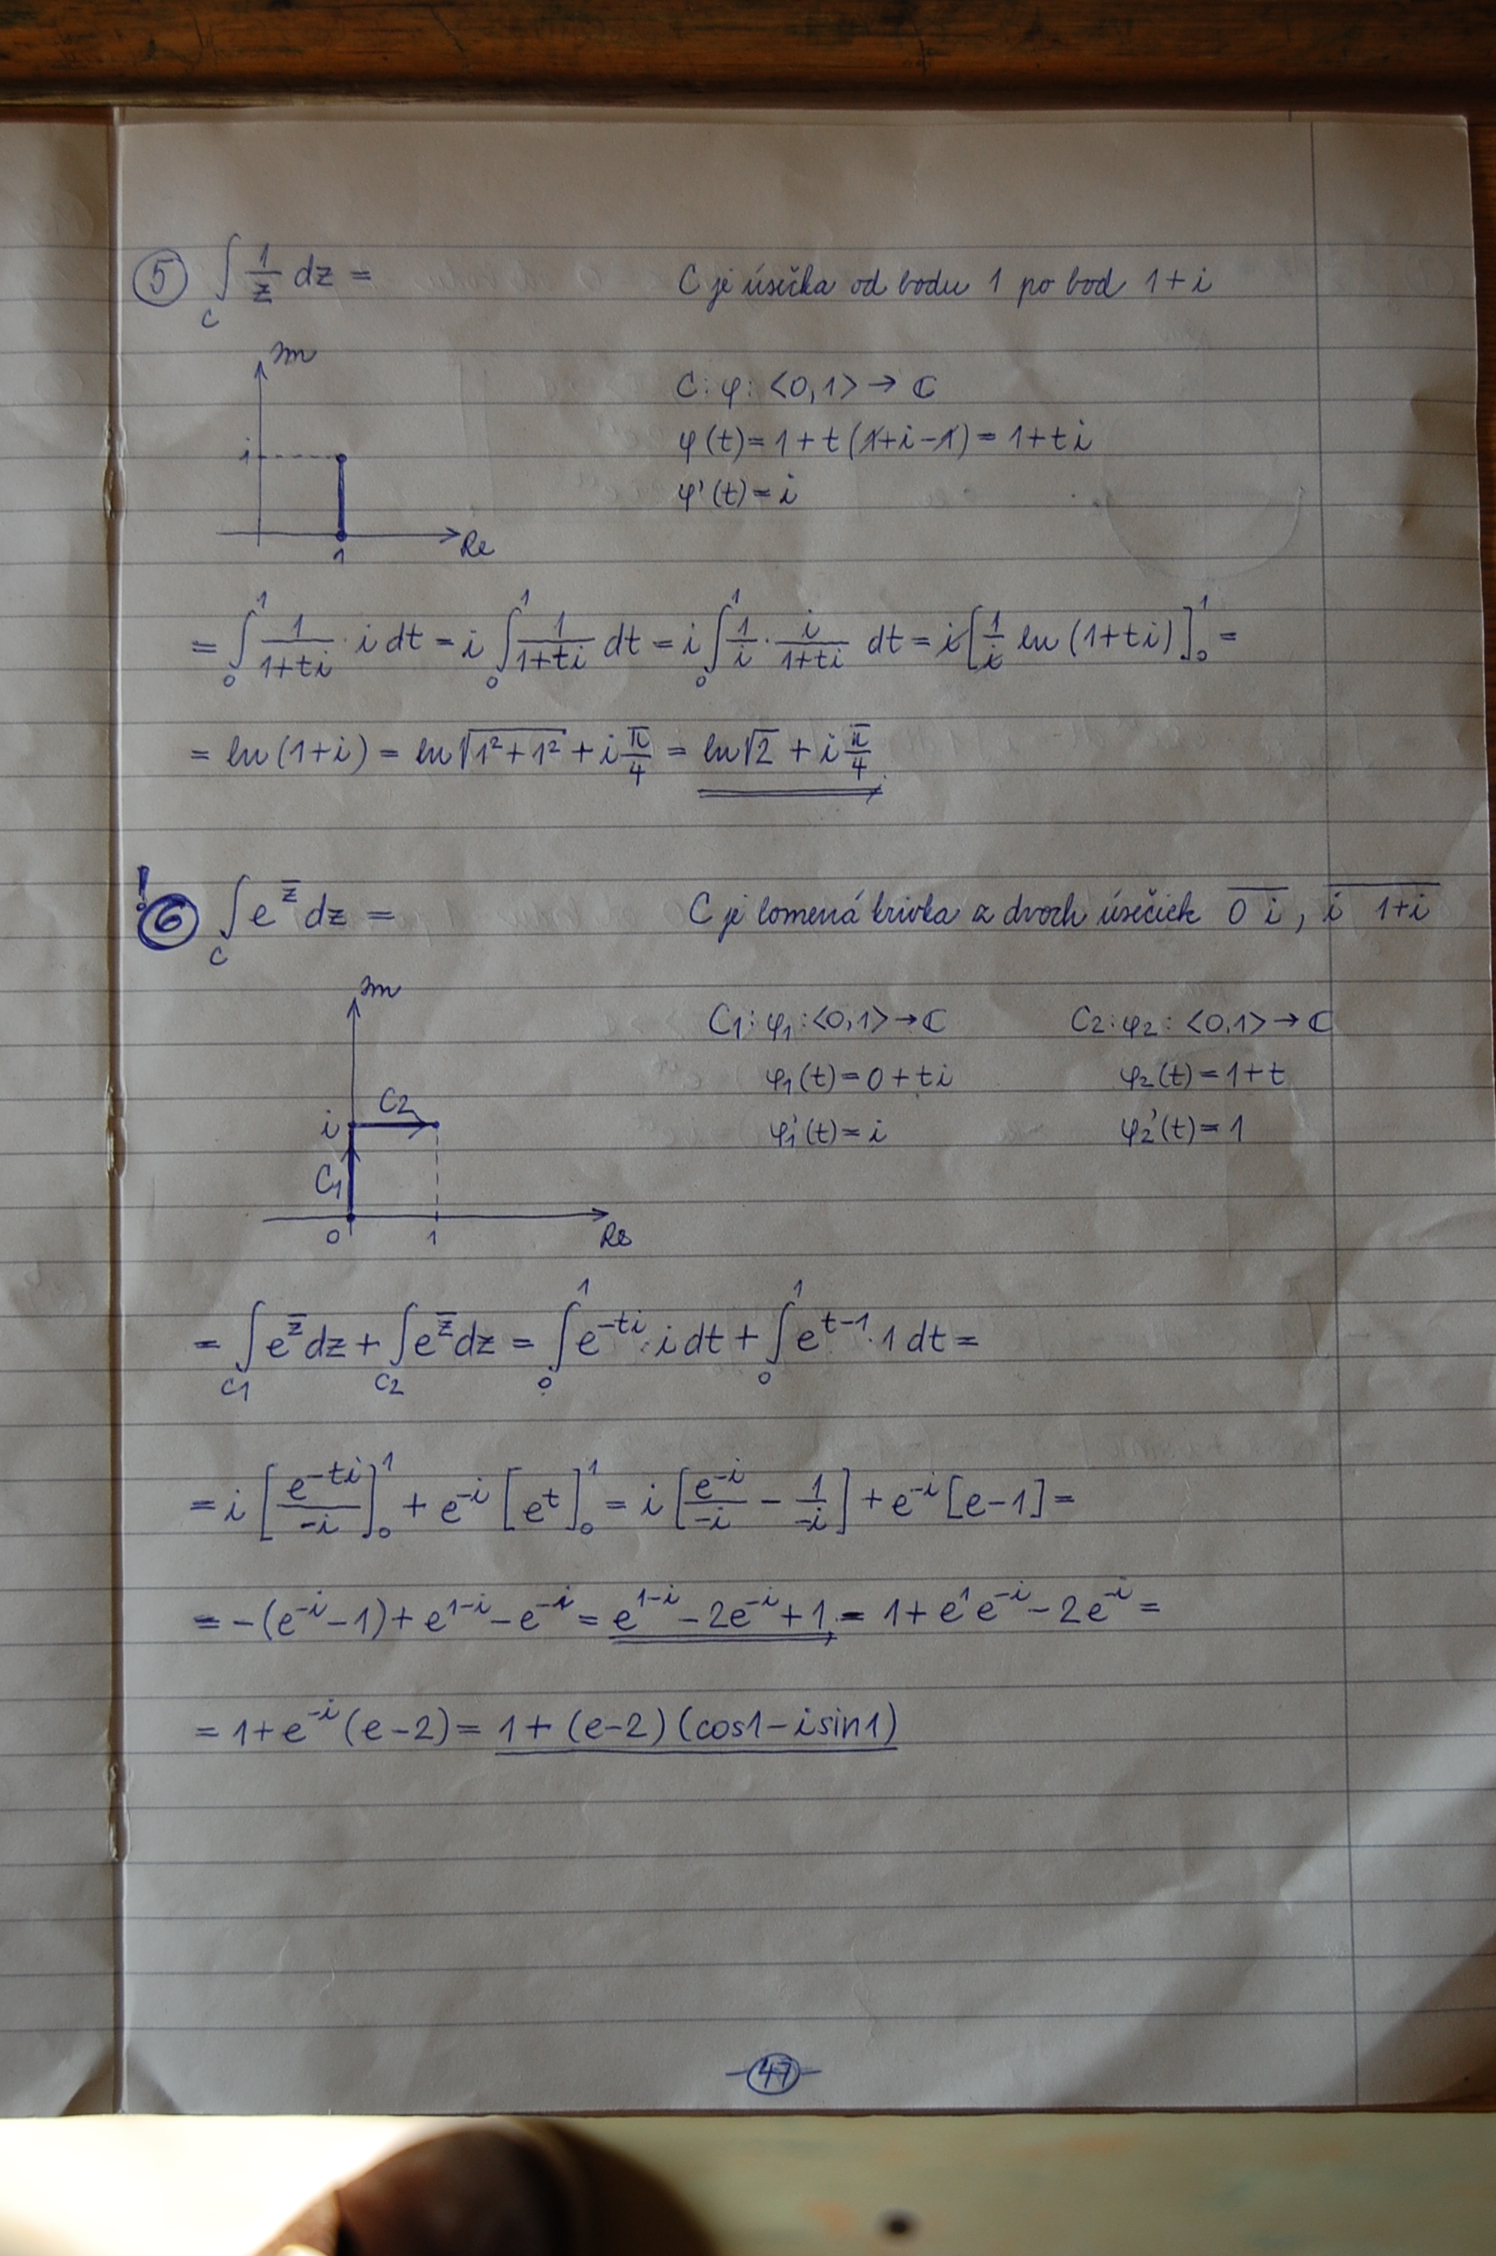 ⑤ ∫_C 1/z dz = C je úsečka od bodu 1 po bod 1+i
Im
C: φ: <0,1> → ℂ
φ(t) = 1 + t(1+i-1) = 1+ti
i
φ'(t) = i
Re
1
= ∫_0^1 1/(1+ti) · i dt = i ∫_0^1 1/(1+ti) dt = i ∫_0^1 1/i · i/(1+ti) dt = i [1/i ln (1+ti)]_0^1 =
= ln (1+i) = ln √(1²+1²) + i π/4 = ln √2 + i π/4
! ⑥ ∫_C e^z̄ dz = C je lomená krivka z dvoch úsečiek \overline{0 i}, \overline{i 1+i}
Im
C1: φ1: <0,1> → ℂ C2: φ2: <0,1> → ℂ
φ1(t) = 0 + ti φ2(t) = 1+t
C2
i
φ1'(t) = i φ2'(t) = 1
C1
0 1 Re
= ∫_C1 e^z̄ dz + ∫_C2 e^z̄ dz = ∫_0^1 e^{-ti} · i dt + ∫_0^1 e^{t-1} · 1 dt =
= i [e^{-ti}/-i]_0^1 + e^{-i} [e^t]_0^1 = i [e^{-i}/-i - 1/-i] + e^{-i} [e-1] =
= -(e^{-i}-1) + e^{1-i} - e^{-i} = e^{1-i} - 2e^{-i} + 1 = 1 + e^1 e^{-i} - 2e^{-i} =
= 1 + e^{-i} (e-2) = 1 + (e-2) (cos1 - i sin1)
- 47 -